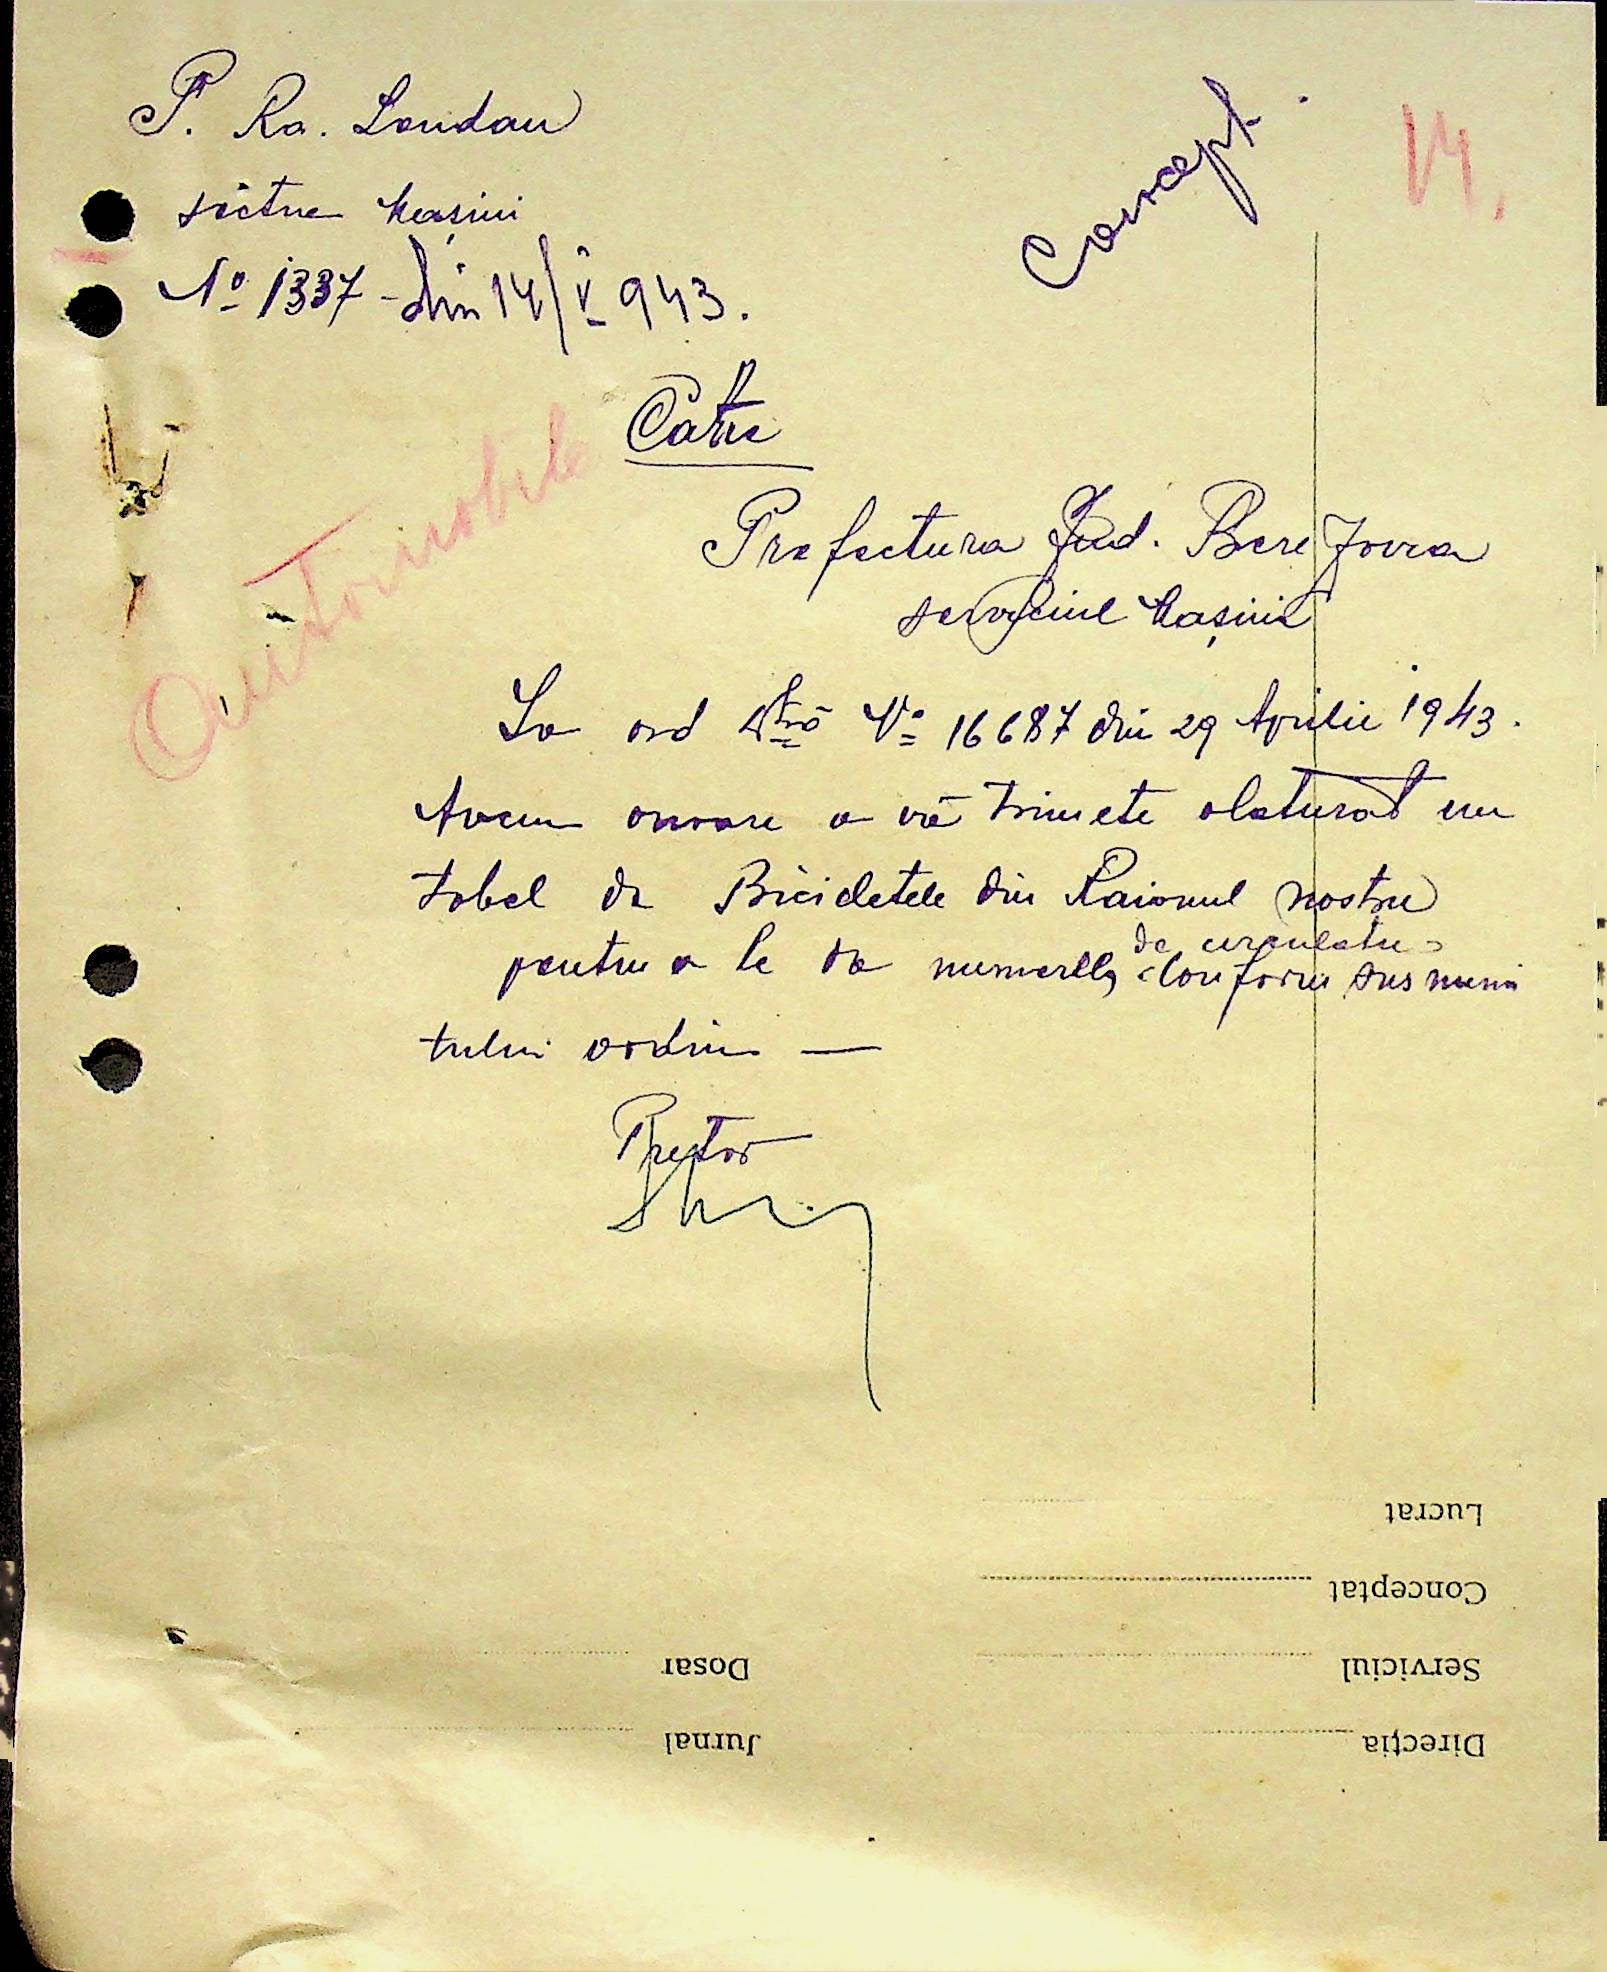 P. Ra. Landau
Concept.
14.
sectne Mașini
No 1337 - din 14/V 943.
Catre
Automobile
Prefectura Jud. Berezovca
serviciul Mașini
La ord Dtră No 16687 din 29 Aprilie 1943.
Avem onoare a vă trimete alaturat un
tabel de Bicicletele din Raionul nostru
pentru a le da numerele, de circulatie
conform sus numi
tului ordin —
Pretor
Lucrat
Conceptat
Serviciul
Dosar
Direcția
Jurnal